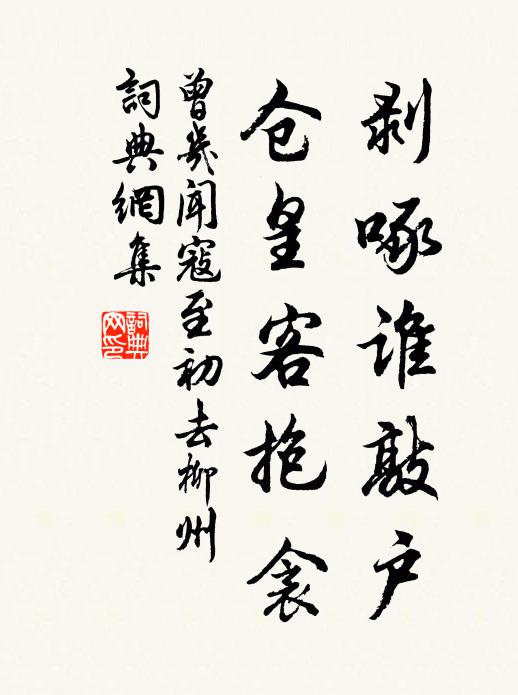 剥啄谁敲户
仓皇客抱衾
曾幾闻寇至初去柳州
詞典網集
詞典网印